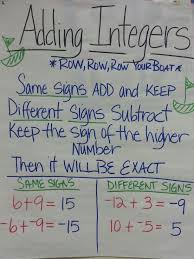 Adding Integers
*ROW, ROW, ROW YOUR BOAT*
Same Signs ADD and KEEP
Different Signs Subtract
Keep the Sign of the higher
Number
Then it WILL BE EXACT
SAME SIGNS DIFFERENT SIGNS
6+9=15 -12+3=-9
-6+-9=-15 10+-5=5